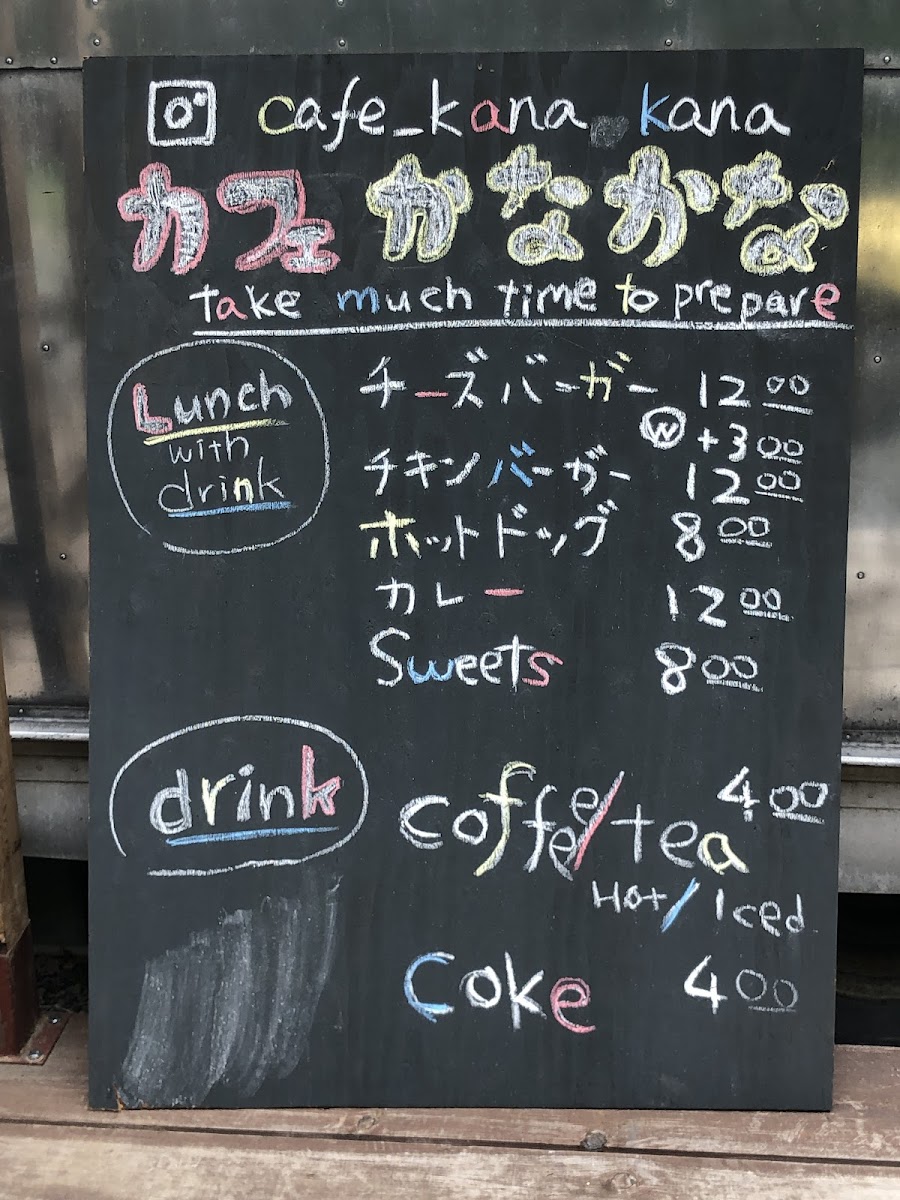 cafe_kana_kana
カフェかなかな
take much time to prepare
Lunch
with
drink
チーズバーガー 1200
W +300
チキンバーガー 1200
ホットドッグ 800
カレー 1200
Sweets 800
drink
coffee/tea 400
Hot/Iced
Coke 400